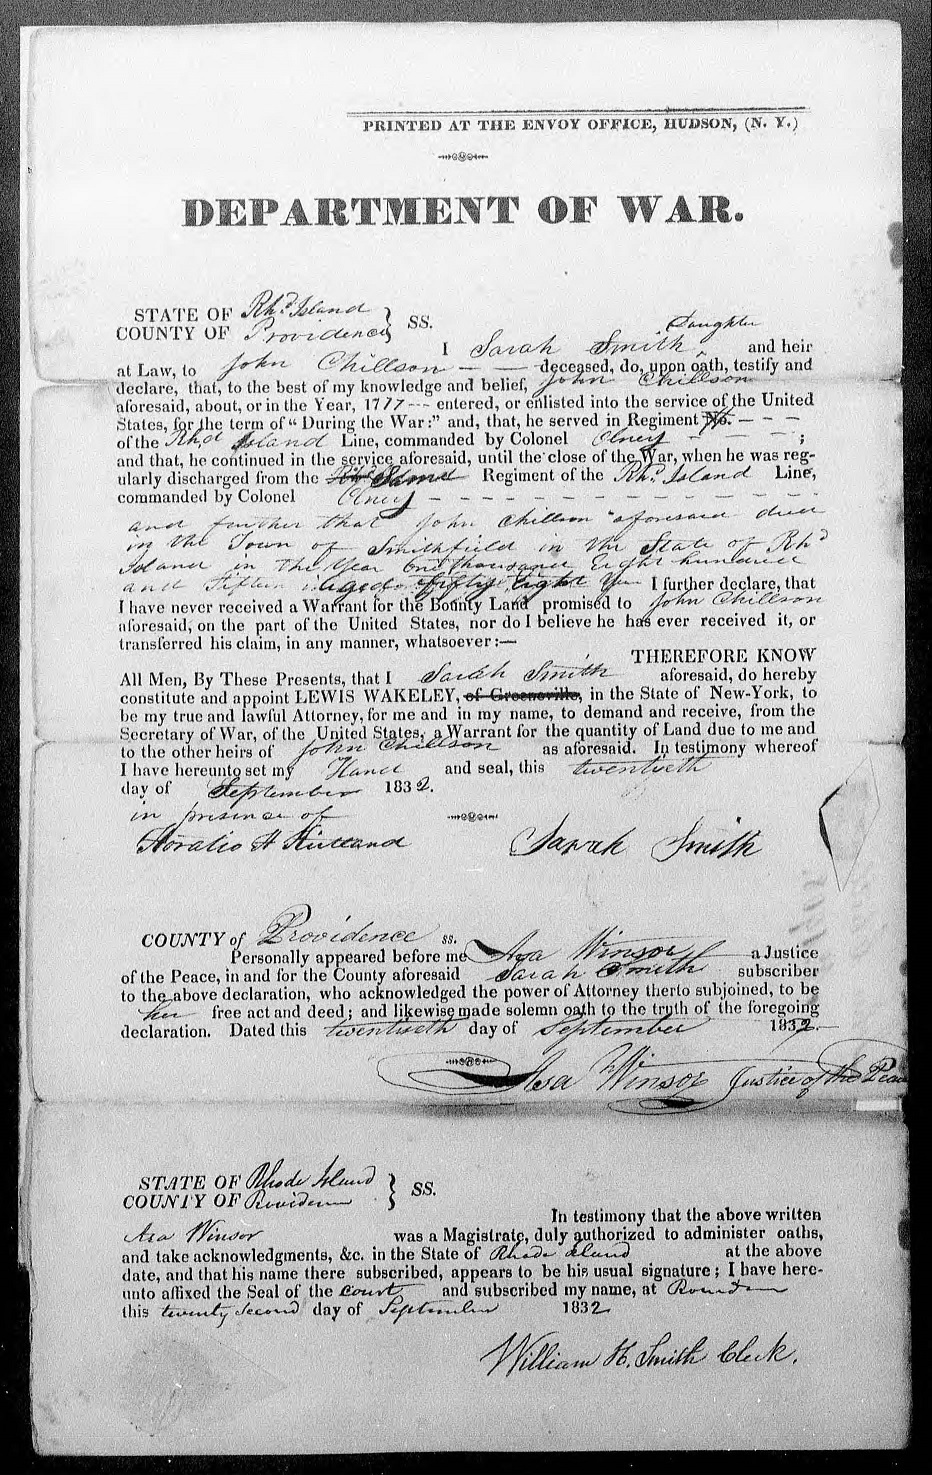 PRINTED AT THE ENVOY OFFICE, HUDSON, (N. Y.)
DEPARTMENT OF WAR.
STATE OF Rhd. Island
COUNTY OF Providence } SS.
I Sarah Smith, Daughter and heir
at Law, to John Chillson — — deceased, do, upon oath, testify and
declare, that, to the best of my knowledge and belief, John Chillson
aforesaid, about, or in the Year, 1777 --- entered, or enlisted into the service of the United
States, for the term of "During the War:" and, that, he served in Regiment No. — — —
of the Rhd. Island Line, commanded by Colonel Olney — — — ;
and that, he continued in the service aforesaid, until the close of the War, when he was reg-
ularly discharged from the Same Regiment of the Rhd. Island Line,
commanded by Colonel Olney — — — — — —
and further that John Chillson aforesaid died
in the Town of Smithfield in the State of Rhd
Island in the Year One thousand Eight hundred
and Fifteen aged Fifty Eight I further declare, that
I have never received a Warrant for the Bounty Land promised to John Chillson
aforesaid, on the part of the United States, nor do I believe he has ever received it, or
transferred his claim, in any manner, whatsoever:—
THEREFORE KNOW
All Men, By These Presents, that I Sarah Smith aforesaid, do hereby
constitute and appoint LEWIS WAKELEY, of Greenville, in the State of New-York, to
be my true and lawful Attorney, for me and in my name, to demand and receive, from the
Secretary of War, of the United States, a Warrant for the quantity of Land due to me and
to the other heirs of John Chillson as aforesaid. In testimony whereof
I have hereunto set my Hand and seal, this twentieth
day of September 1832.
in presence of
Horatio A Sarah Smith
COUNTY of Providence ss.
Personally appeared before me Asa Winsor a Justice
of the Peace, in and for the County aforesaid Sarah Smith subscriber
to the above declaration, who acknowledged the power of Attorney therto subjoined, to be
her free act and deed; and likewise made solemn oath to the truth of the foregoing
declaration. Dated this twentieth day of September 1832
Asa Winsor Justice of the Peace
STATE OF Rhode Island
COUNTY OF Providence } SS.
In testimony that the above written
Asa Winsor was a Magistrate, duly authorized to administer oaths,
and take acknowledgments, &c. in the State of Rhode Island at the above
date, and that his name there subscribed, appears to be his usual signature; I have here-
unto affixed the Seal of the court and subscribed my name, at
this twenty second day of September 1832
William H. Smith Clerk.